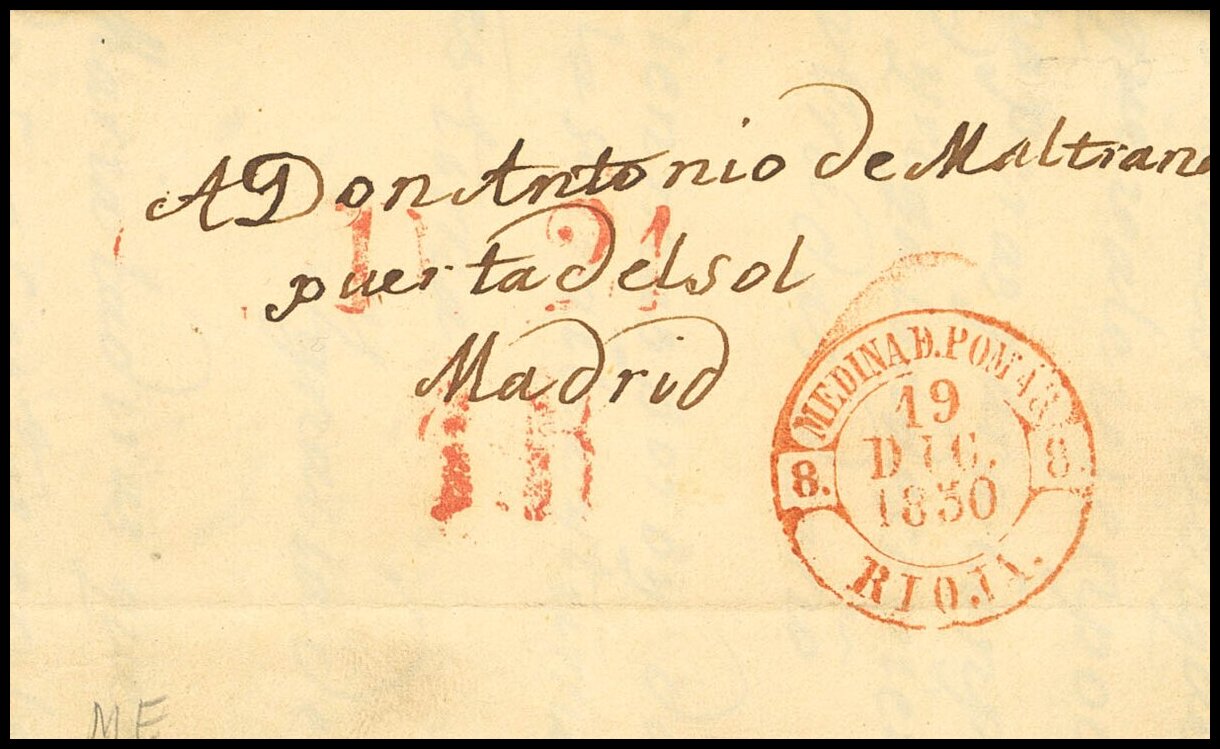 A Don Antonio de Maltrana
puerta del sol
Madrid
MEDINA D. POMAR
19
DIC.
1850
8. 8.
RIOJA.
1R
ME